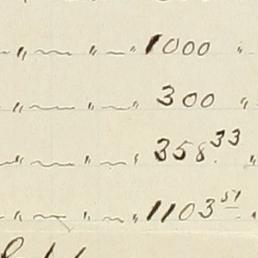 " — " — " 1000 "
" — " — " 300 "
" — " — " 358.33 "
" — " — " 1103 51